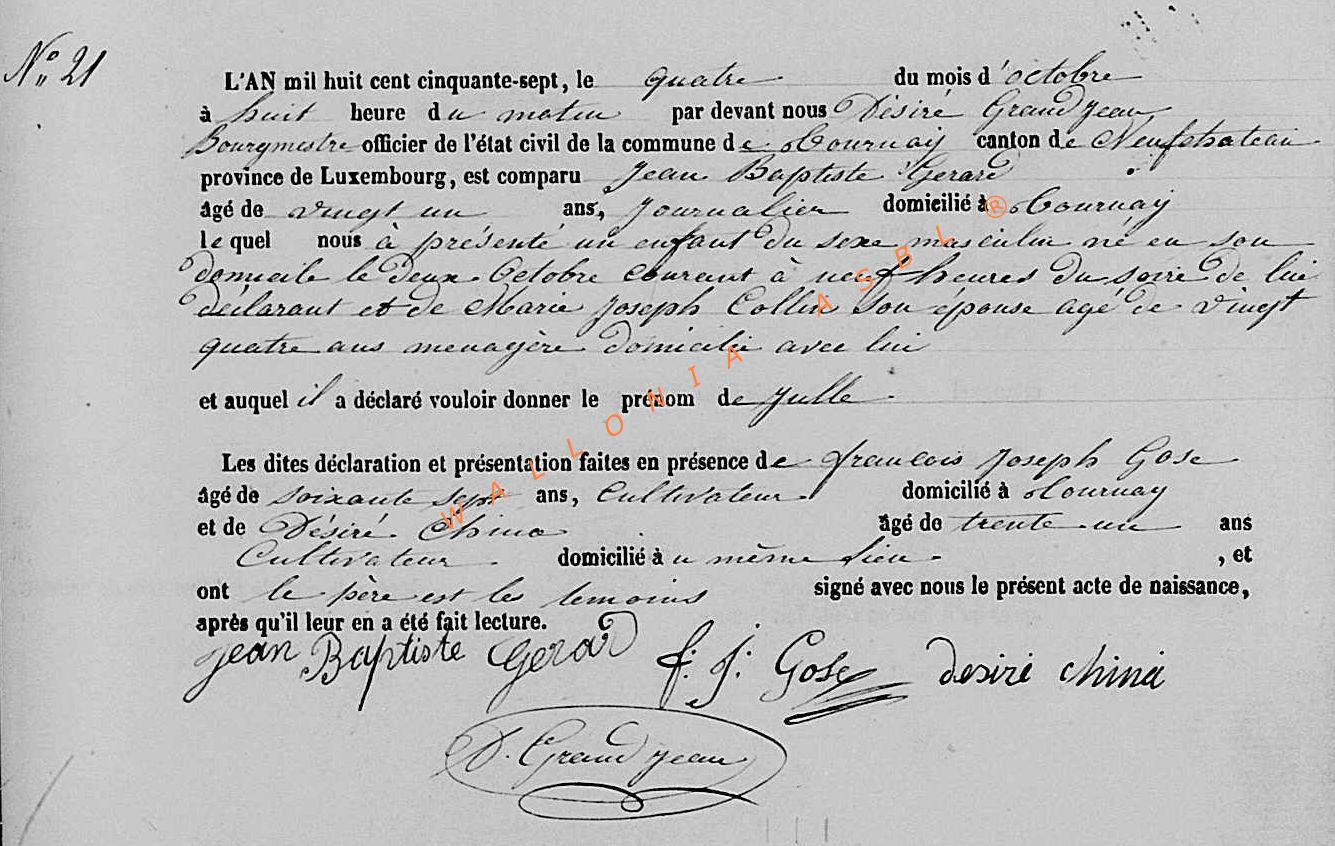 N° 21
L'AN mil huit cent cinquante-sept, le quatre du mois d'octobre
à huit heure du matin par devant nous Désiré Grandjean
Bourgmestre officier de l'état civil de la commune de Tournay canton de Neufchateau
province de Luxembourg, est comparu Jean Baptiste Gerard
âgé de vingt un ans, Journalier domicilié à Tournay
lequel nous à présenté un enfant du sexe masculin né en son
domicile le deux Octobre courant à neuf heures du soire de lui
déclarant et de Marie Joseph Collin son épouse agé de vingt
quatre ans menagère domicilié avec lui
et auquel il a déclaré vouloir donner le prénom de Julle
Les dites déclaration et présentation faites en présence de francois Joseph Gose
âgé de soixante sept ans, Cultivateur domicilié à Tournay
et de Désiré China âgé de trente un ans
Cultivateur domicilié àu même lieu , et
ont le père est les temoins signé avec nous le présent acte de naissance,
après qu'il leur en a été fait lecture.
jean Baptiste Gerard f. j. Gose desiré chiná
D. Grandjean
WALLONIA ASBL ®